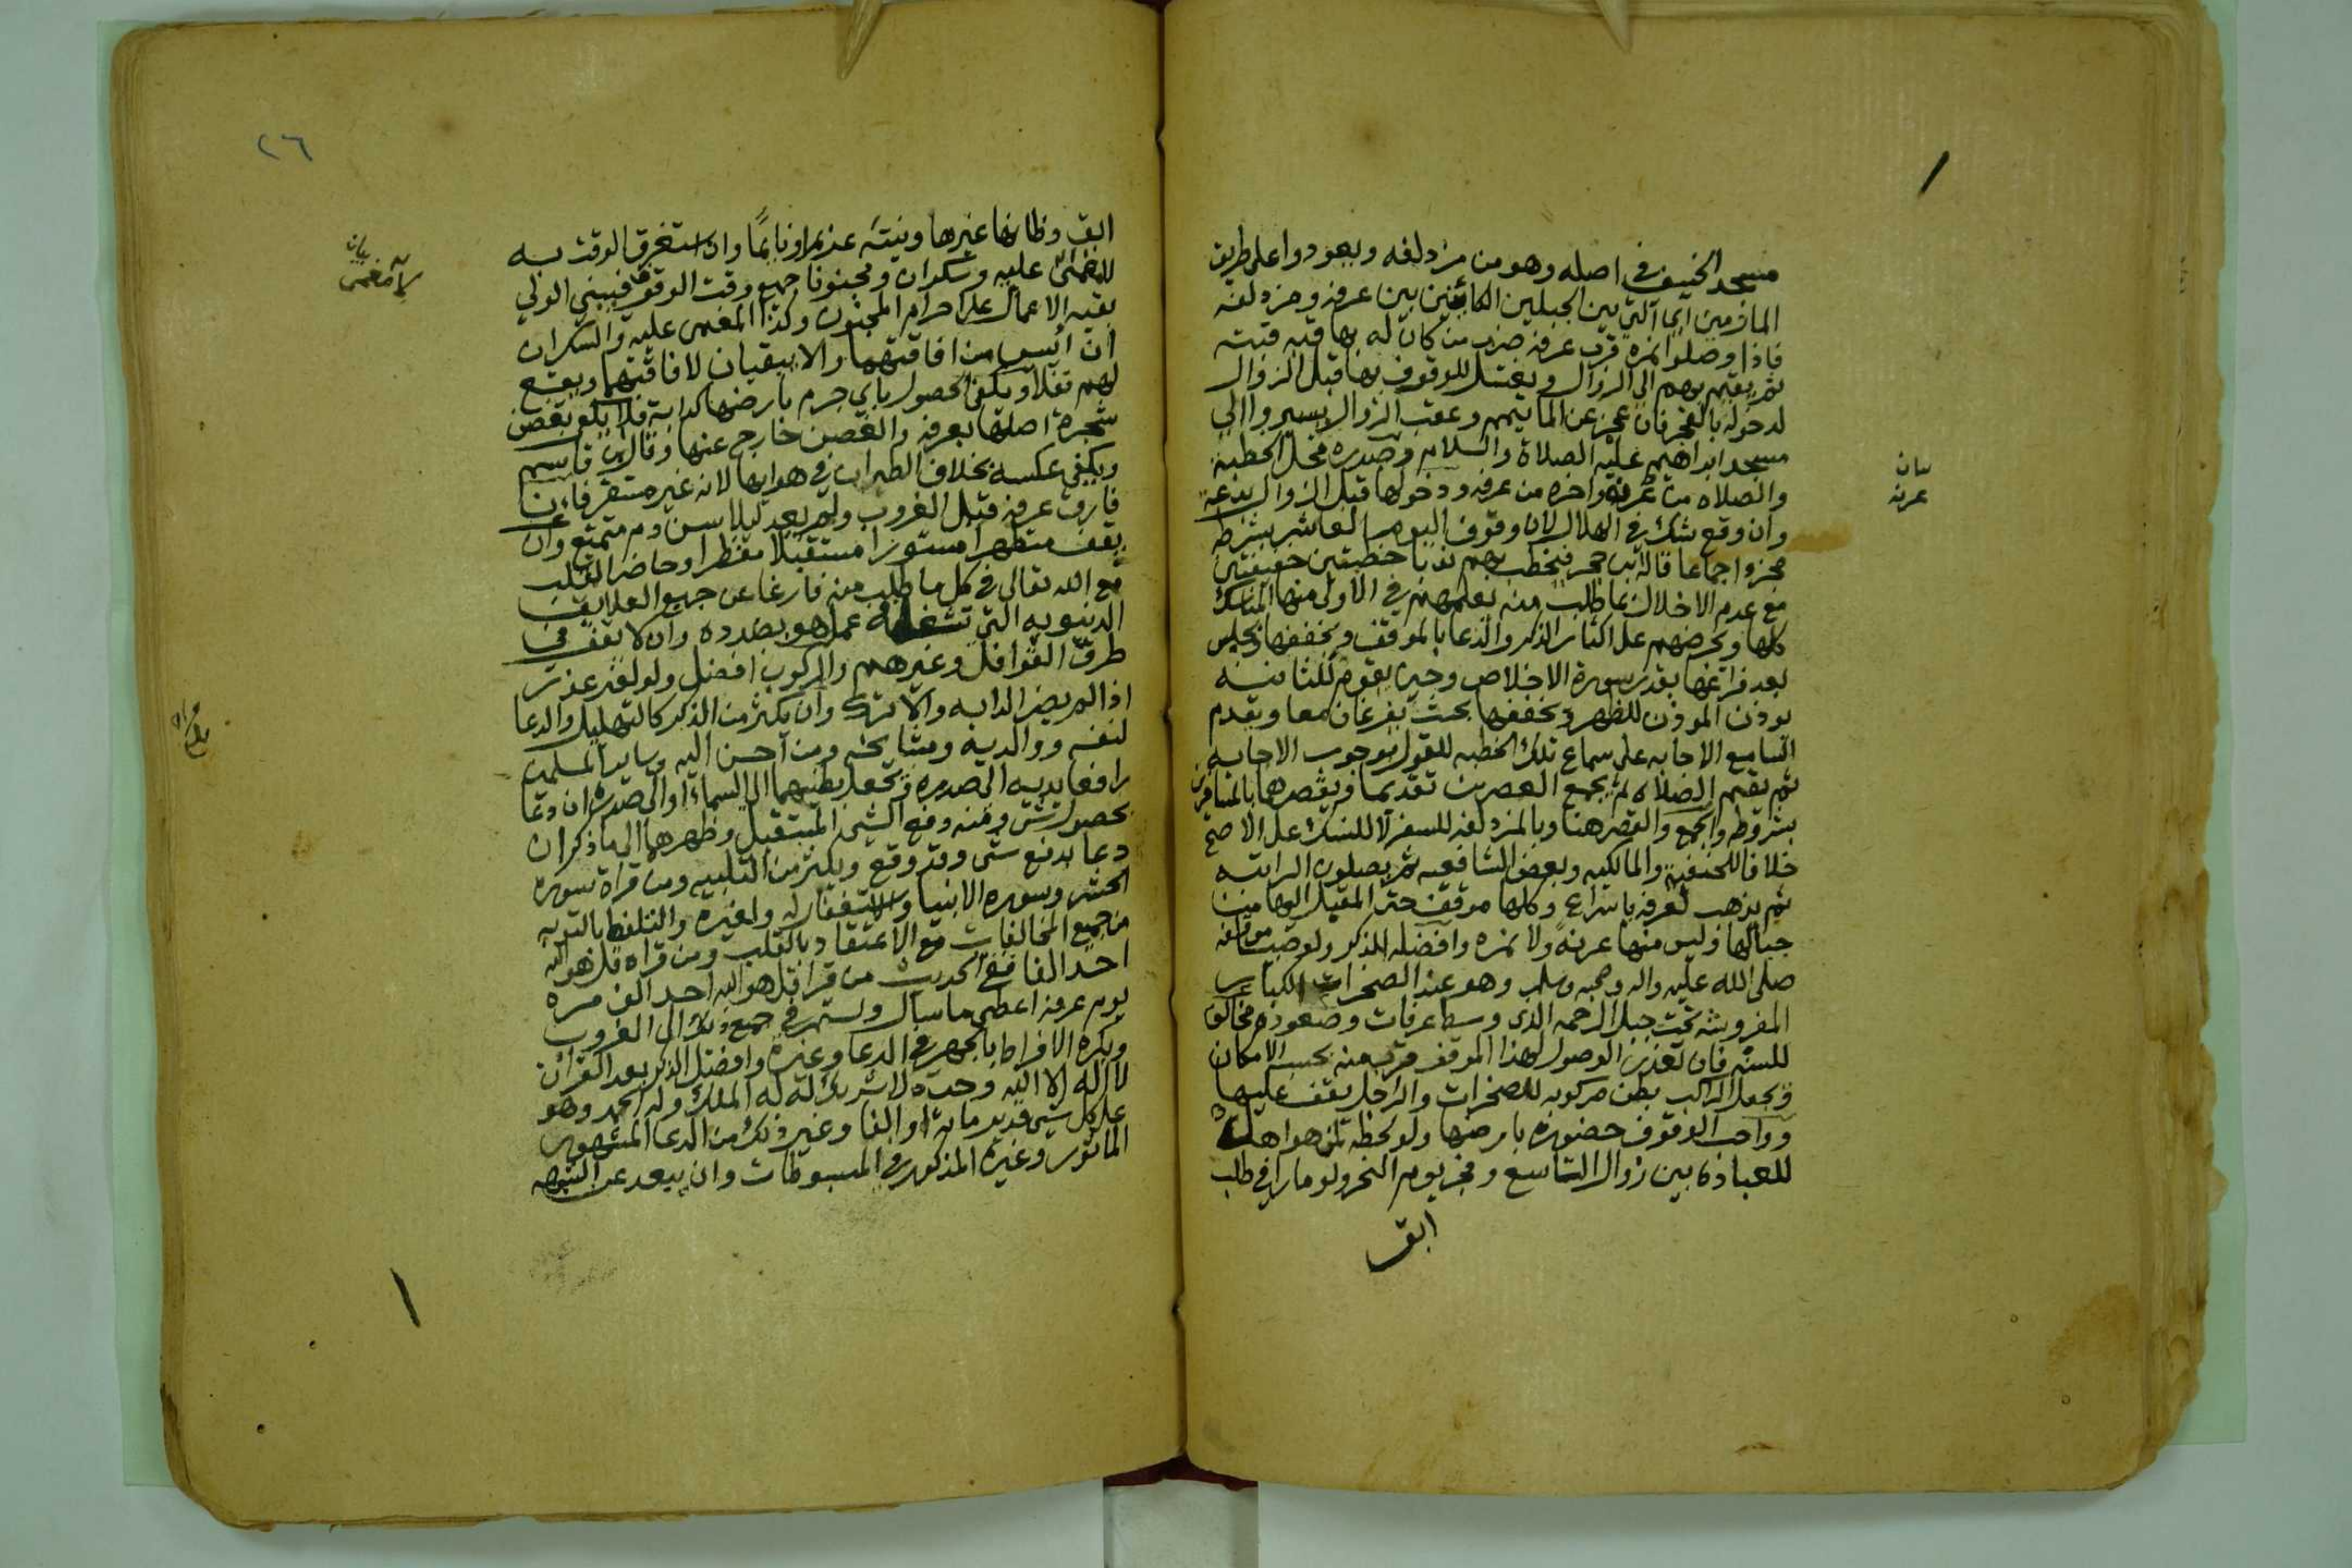 مسجد الخيف في اصله وهو من مزدلفه ويعودوا على طريق
المازمين اي التي بين الجبلين الكائنين بين عرفه ومزدلفه
فاذا وصلوا نمره قرب عرفه ضرب من كان له بها قبه قبته
ثم يقيم بهم الى الزوال ويغتسل للوقوف بها قبل الزوال
لدخوله بالفجر فان عجز عن الما تيمم وعقب الزوال يسيروا الى
مسجد ابراهيم عليه الصلاة والسلام وصدره محل الخطبة
والصلاه من عرنه واخره من عرفه ودخولها قبل الزوال بدعة
وان وقع شك في الهلال لان وقوف اليوم العاشر بشرطه
مجزوا جماعا قاله ابن حجر فيخطب بهم ندبا خطبتين خفيفتين
مع عدم الاخلال بما طلب منه يعلمهم في الاولى منها المناسك
كلها ويحرضهم على اكثار الذكر والدعا بالموقف ويخففها ويجلس
بعد فراغها بقدر سورة الاخلاص وحين يقوم للثانيه
يوذن الموذن للظهر ويخففها بحيث يفرغان معا ويقدم
السامع الاجابه على سماع تلك الخطبه للقول بوجوب الاجابه
ثم يقيم الصلاه ثم يجمع العصرين تقديما ويقصرها بالمسافرين
بشروطه والجمع والقصر هنا وبالمزدلفه للسفر لا للنسك على الاصح
خلافا للحنفيه والمالكيه وبعض الشافعيه ثم يصلون الراتبه
ثم يذهب لعرفه باسراع وكلها موقف حتى المقبل اليها من
جبالها وليس منها عرنة ولا نمره وافضله للذكر ولو صبيا موقفه
صلى الله عليه واله وصحبه وسلم وهو عند الصخرات الكبار
المفروشه تحت جبل الرحمه الذي وسط عرفات وصعوده مخالف
للسنه فان تعذر الوصول لهذا الموقف قرب منه بحسب الامكان
ويجعل الراكب بطن مركوبه للصخرات والراجل يقف عليها
وواجب الوقوف حضوره بارضها ولو لحظه لمن هو اهل
للعباده بين زوال التاسع وفجر يوم النحر ولو مارا في طلب
ابق
بيان
عرنه
/
٢٦
ابق وظانها غيرها ونيته غريم او نايما وان استغرق الوقت به
لا مغمى عليه وسكران ومجنونا جميع وقت الوقوف فيبني الولي
بقيه الاعمال على احرام المجنون وكذا المغمى عليه والسكران
ان ايس من افاقتهما والا يبقيان لافاقتهما ويقع
لهم نفلا ويكفي الحصول باي جرم بارضها كدابة فلا يكفي غصن
شجرة اصلها بعرفه والغصن خارج عنها وقال ابن قاسم
ويكفي عكسه بخلاف الطيران في هوايها لانه غير مستقر فان
فارق عرفه قبل الغروب ولم يعد ليلا سن دم متمتع وان
يقف متطهرا مستورا مستقبلا مفطرا وحاضر القلب
مع الله تعالى في كل ما طلب منه فارغا عن جميع العلايق
الدنيويه التي تشغله عما هو بصدده وان لا يقف في
طرق القوافل وغيرهم والركوب افضل ولو لغير عذر
اذا لم يضر الدابه والا ترك وان يكثر من الذكر كالتهليل والدعا
لنفسه ووالديه ومشايخه ومن احسن اليه وساير المسلمين
رافعا يديه الى صدره ويجعل بطنهما الى السماء او الى صدره ان دعا
بحصول شي ومنه دفع الشي المستقبل وظهرهما الى ما ذكر ان
دعا بدفع شي وقد وقع ويكثر من التلبيه ومن قراة سورة
الحشر وسوره الانبيا والاستغفار له ولغيره والتلفظ بالتوبه
من جميع المخالفات مع الاعتقاد بالقلب ومن قراه قل هو الله
احد الفا ففي الحديث من قرا قل هو الله احد الف مره
يوم عرفه اعطي ما سال ويستمر في جميع ذلك الى الغروب
ويكره الافراط بالجهر في الدعا وغيره وافضل الذكر بعد القران
لا اله الا الله وحده لا شريك له له الملك وله الحمد وهو
على كل شي قدير مائة او الفا وغير ذلك من الدعا المشهور
الماثور وغيره المذكور في المبسوطات وان يبعد عن الشبهه
بيان
لا مغمى
بلغ